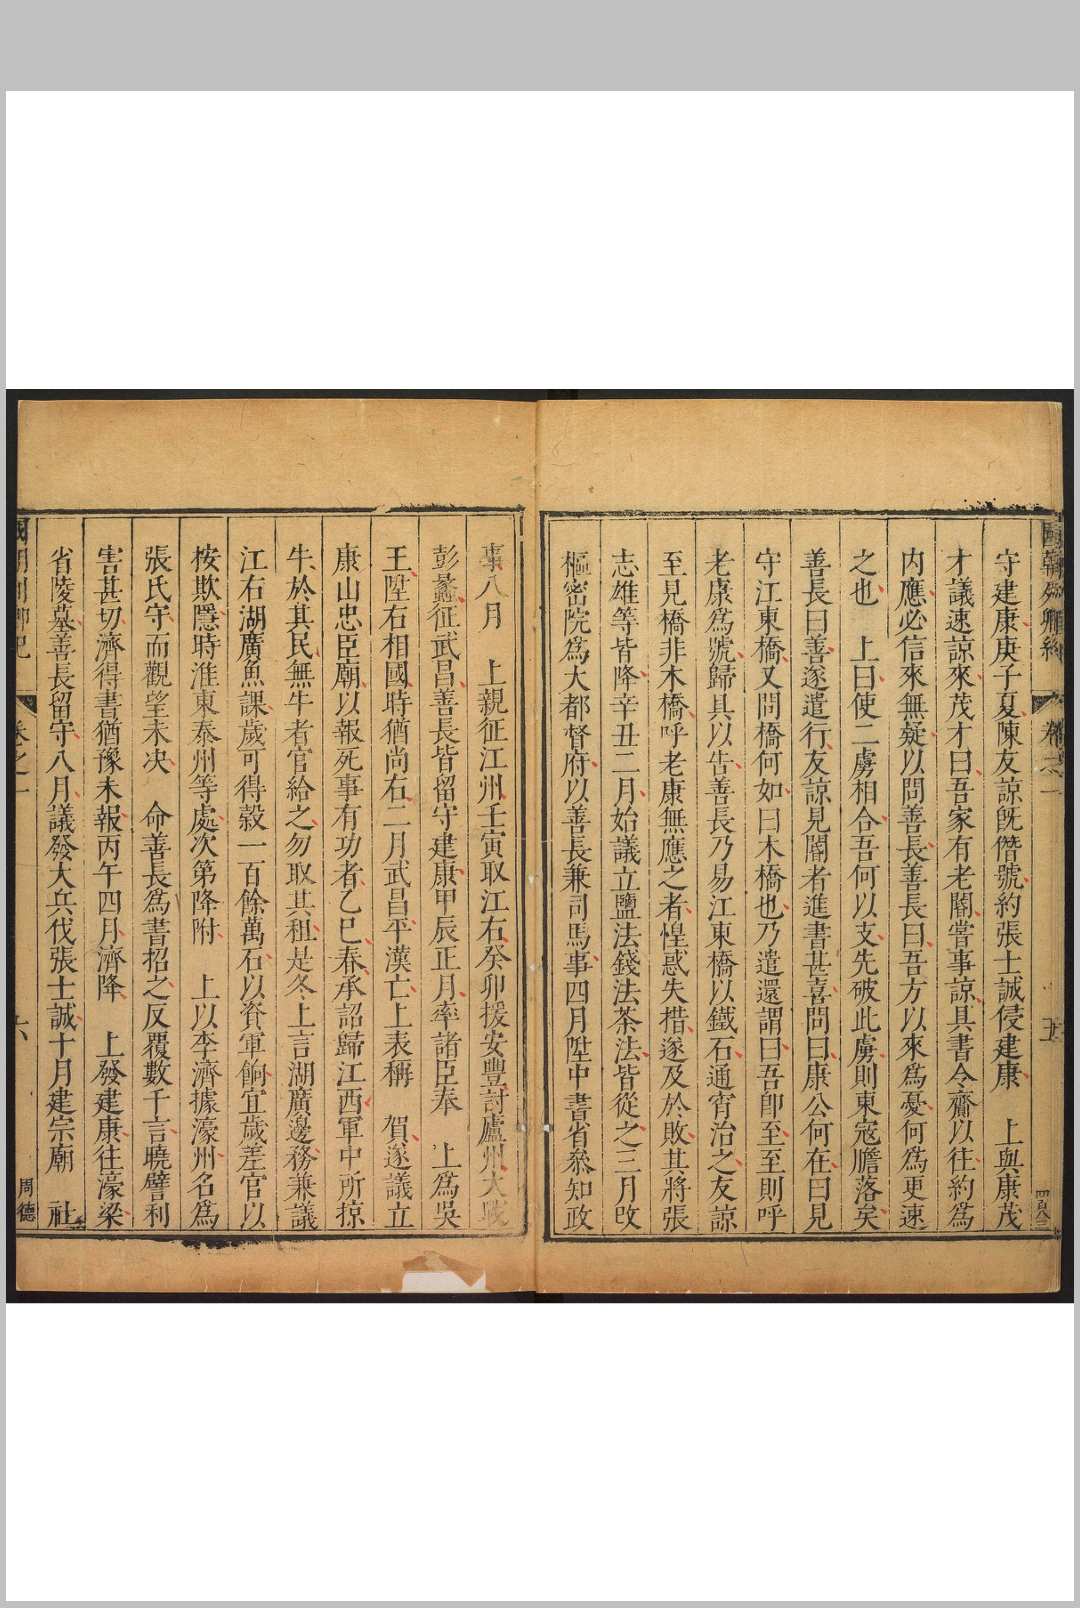 國朝列卿紀 卷之一 五 四百八三
守建康庚子夏陳友諒旣僭號約張士誠侵建康 上與康茂
才議速諒來茂才曰吾家有老閽嘗事諒其書令齎以往約爲
内應必信來無疑以問善長善長曰吾方以來爲憂何爲更速
之也 上曰使二虜相合吾何以支先破此虜則東寇膽落矣
善長曰善遂遣行友諒見閽者進書甚喜問曰康公何在曰見
守江東橋又問橋何如曰木橋也乃遣還謂曰吾卽至至則呼
老康爲號歸具以告善長乃易江東橋以鐵石通宵治之友諒
至見橋非木橋呼老康無應之者惶惑失措遂及於敗其將張
志雄等皆降辛丑二月始議立鹽法錢法茶法皆從之三月改
樞密院爲大都督府以善長兼司馬事四月陞中書省叅知政
事八月 上親征江州壬寅取江右癸卯援安豐討廬州大戰
彭蠡征武昌善長皆留守建康甲辰正月率諸臣奉 上爲吳
王陞右相國時猶尚右二月武昌平漢亡上表稱 賀遂議立
康山忠臣廟以報死事有功者乙巳春承詔歸江西軍中所掠
牛於其民無牛者官給之勿取其租是冬上言湖廣邊務兼議
江右湖廣魚課歲可得穀一百餘萬石以資軍餉宜歲差官以
按欺隱時淮東泰州等處次第降附 上以李濟據濠州名爲
張氏守而觀望未决 命善長爲書招之反覆數千言曉譬利
害甚切濟得書猶豫未報丙午四月濟降 上發建康往濠梁
省陵墓善長留守八月議發大兵伐張士誠十月建宗廟 社
國朝列卿紀 卷之一 六 周德